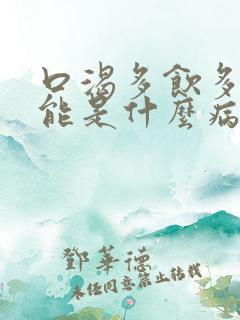 口渴多飲多
能是什麼病
鄧華德
未任同意禁止轉載